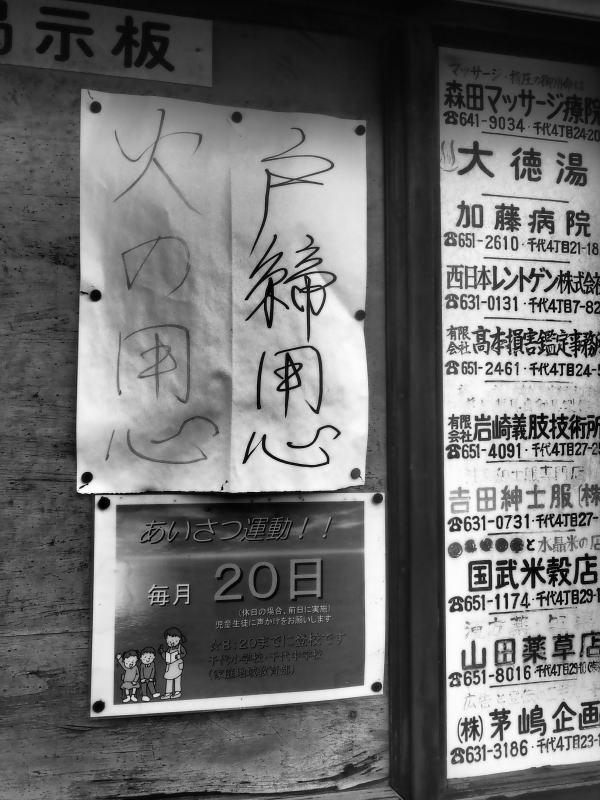 掲示板
戸締用心
火の用心
あいさつ運動!!
毎月 20日
(休日の場合、前日に実施)
児童生徒に声かけをお願いします
☆8:20までに登校です
千代小学校・千代中学校
(家庭地域教育部)
マッサージ・指圧の御用命は
森田マッサージ療院
☎641-9034・千代4丁目24-20
♨大徳湯
加藤病院
☎651-2610・千代4丁目21-18
西日本レントゲン株式会社
☎631-0131・千代4丁目7-82
有限会社 高本損害鑑定事務所
☎651-2461・千代4丁目24-5
有限会社 岩崎義肢技術所
☎651-4091・千代4丁目27-25
吉田紳士服(株
☎631-0731・千代4丁目27-
と水晶米の店
国武米穀店
☎651-1174・千代4丁目29-1
山田薬草店
☎651-8016・千代4丁目29-10
(株)茅嶋企画
☎631-3186・千代4丁目23-1